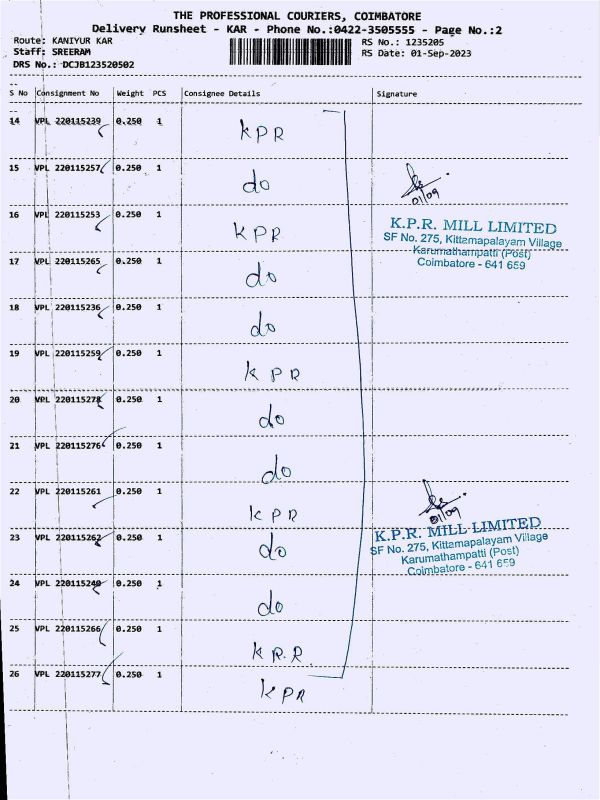 THE PROFESSIONAL COURIERS, COIMBATORE
Delivery Runsheet - KAR - Phone No.:0422-3505555 - Page No.:2
Route: KANIYUR KAR
RS No.: 1235205
Staff: SREERAM
RS Date: 01-Sep-2023
DRS No.: DCJB123520502
S No Consignment No Weight PCS Consignee Details Signature
14 VPL 220115239 0.250 1 KPR
15 VPL 220115257 0.250 1 do
01/09
16 VPL 220115253 0.250 1 KPR
K.P.R. MILL LIMITED
SF No. 275, Kittamapalayam Village
Karumathampatti (Post)
Coimbatore - 641 659
17 VPL 220115265 0.250 1 do
18 VPL 220115236 0.250 1 do
19 VPL 220115259 0.250 1 KPR
20 VPL 220115278 0.250 1 do
21 VPL 220115276 0.250 1 do
22 VPL 220115261 0.250 1 KPR
01/09
K.P.R. MILL LIMITED
SF No. 275, Kittamapalayam Village
Karumathampatti (Post)
Coimbatore - 641 659
23 VPL 220115262 0.250 1 do
24 VPL 220115240 0.250 1 do
25 VPL 220115266 0.250 1 K R.R
26 VPL 220115277 0.250 1 KPR